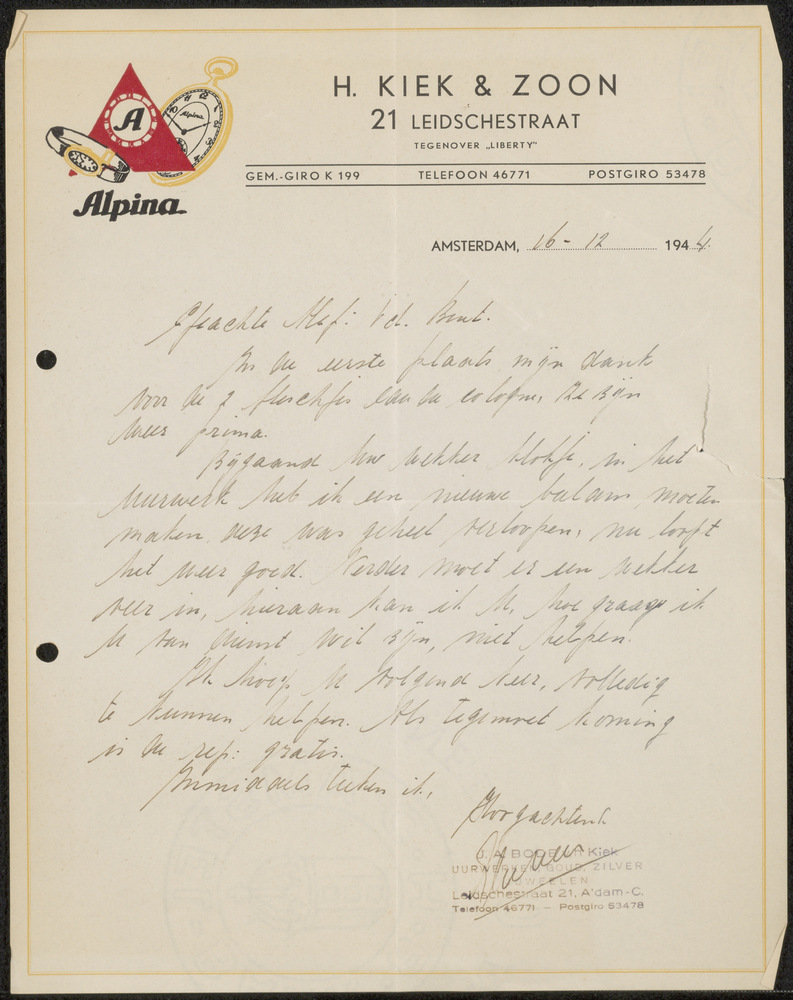 H. KIEK & ZOON
21 LEIDSCHESTRAAT
TEGENOVER „LIBERTY"
GEM.-GIRO K 199 TELEFOON 46771 POSTGIRO 53478
A
Alpina
Alpina
AMSTERDAM, 16 - 12 1944.
Geachte Mej: v.d. Bent.
In de eerste plaats mijn dank
voor de 2 fleschjes eau de cologne, ze zijn
weer prima.
Bijgaand Uw wekker klokje, in het
uurwerk heb ik een nieuwe balans moeten
maken, deze was geheel verloopen, nu loopt
het weer goed. Verder moet er een wekker
veer in, hieraan kan ik U, hoe graag ik
U van dienst wil zijn, niet helpen.
Ik hoop U volgend keer, volledig
te kunnen helpen. Als tegemoet koming
is de rep: gratis.
Inmiddels teeken ik,
Hoogachtend
J. A. BODE Kiek
UURWERKEN, GOUD, ZILVER
JUWEELEN
Leidschestraat 21, A'dam-C.
Telefoon 46771 — Postgiro 53478